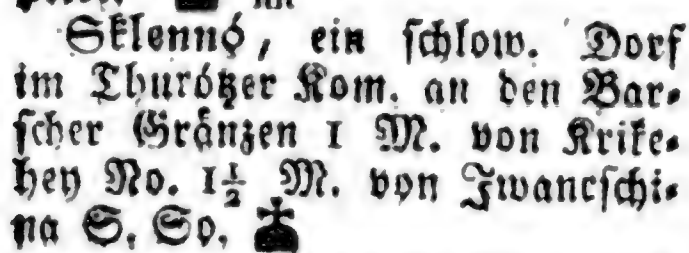 Sklennó, ein schlow. Dorf
im Thurótzer Kom. an den Bar-
scher Gränzen 1 M. von Krike-
hey No. 1½ M. von Jwancschi-
na S. So.